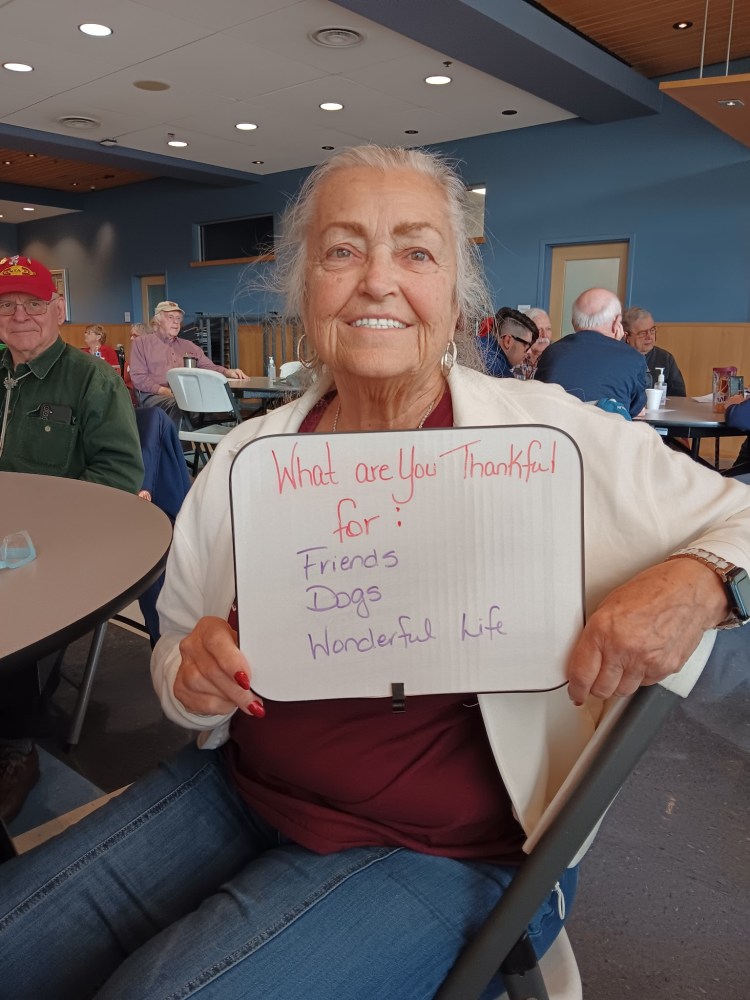 What are You Thankful
for :
Friends
Dogs
Wonderful Life